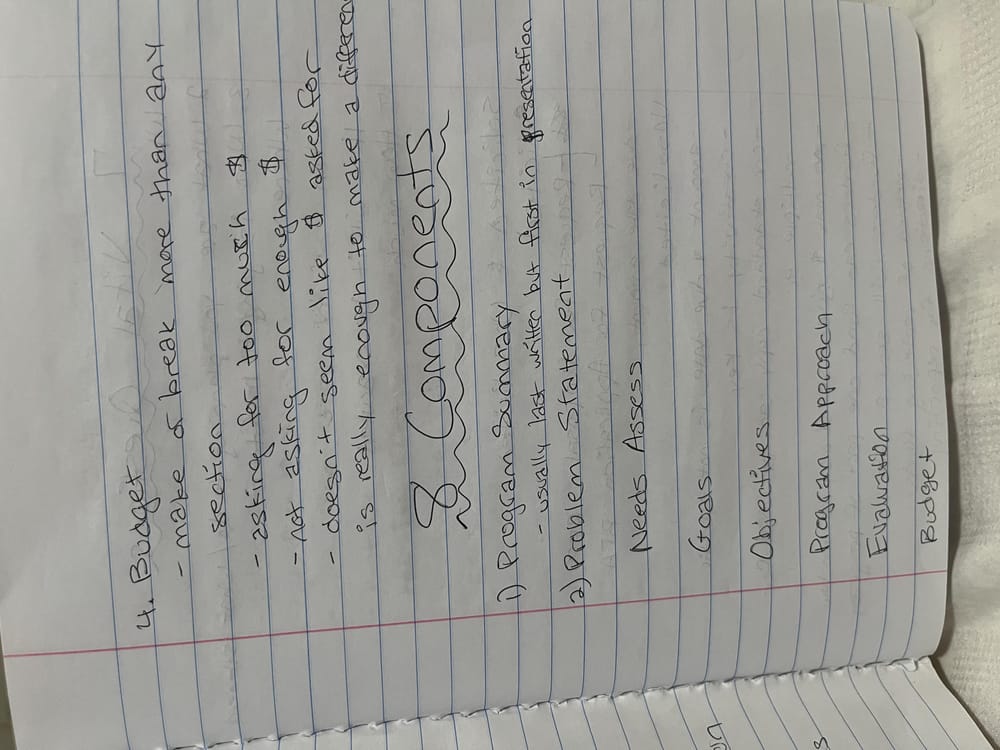 4. Budget
- make or break more than any
section
- asking for too much $
- not asking for enough $
- doesn't seem like $ asked for
is really enough to make a differen
8 Components
1) Program Summary
- usually last written but first in presentation
2) Problem Statement
Needs Assess
Goals
Objectives
Program Approach
Evaluation
Budget